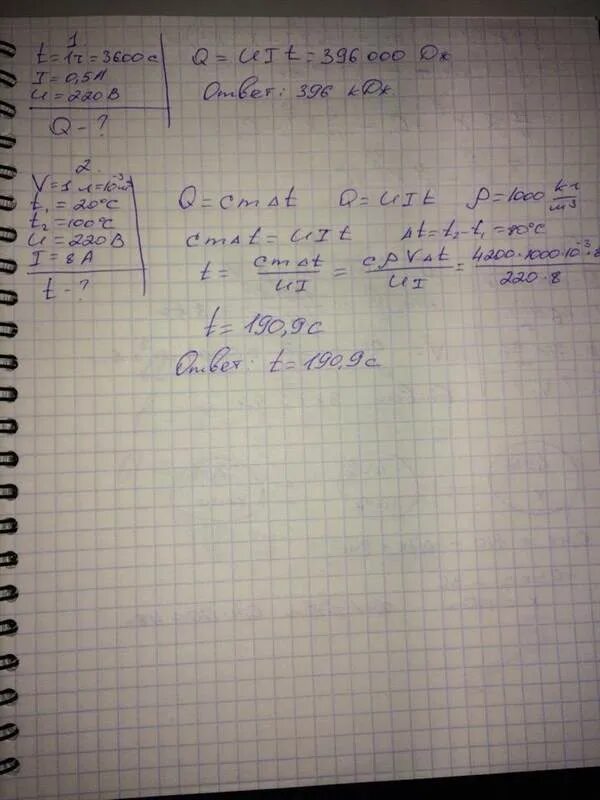 1
t = 1ч = 3600 с
I = 0,5 А
U = 220 В
Q - ?
Q = UIt = 396 000 Дж
Ответ: 396 кДж
2.
V = 1 л = 10⁻³ м³
t₁ = 20°C
t₂ = 100°C
U = 220 В
I = 8 А
t - ?
Q = cmΔt Q = UIt ρ = 1000 кг/м³
cmΔt = UIt Δt = t₂ - t₁ = 80°C
t = cmΔt/UI = cρVΔt/UI = 4200·1000·10⁻³·8/220·8
t = 190,9 с
Ответ: t = 190,9 с